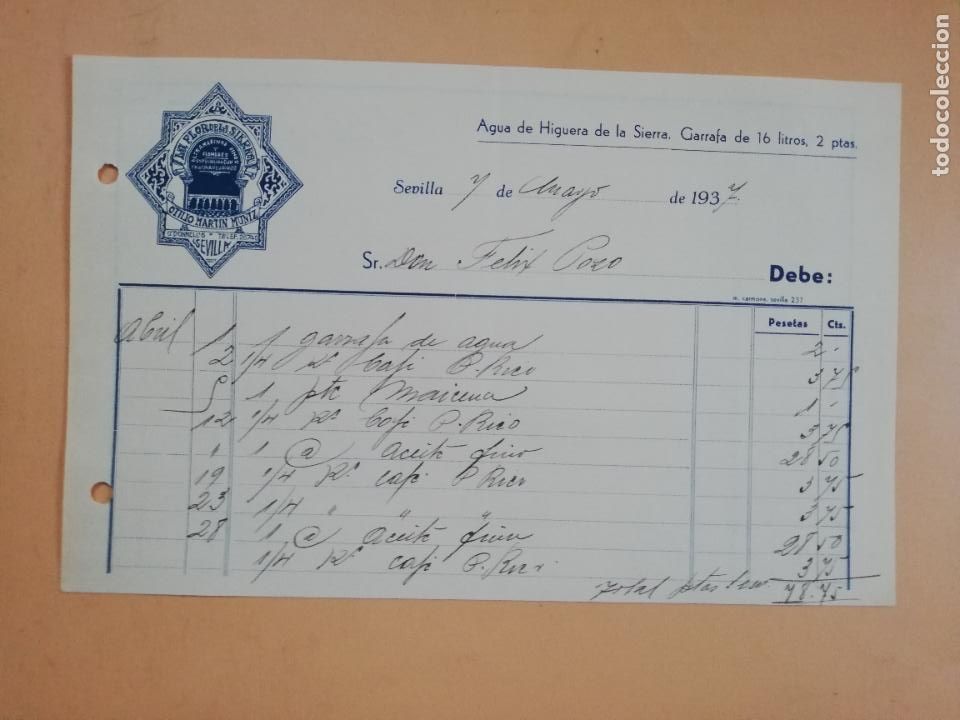 Agua de Higuera de la Sierra. Garrafa de 16 litros, 2 ptas.
LA FLOR DE LA SIERRA
OTILIO MARTIN MUÑIZ
SEVILLA
Sevilla 7 de Mayo de 1937.
Sr. Don Felix Pozo Debe:
m. carmona. sevilla 237
Pesetas Cts.
Abril 1 1 garrafa de agua 2 -
2 1/4 Kº Café P. Rico 3 75
5 1 ptc Maicena 1 -
12 1/4 Kº Café P. Rico 3 75
" 1 @ Aceite fino 28 50
19 1/4 Kº Café P Rico 3 75
23 1/4 " " " 3 75
28 1 @ Aceite fino 28 50
1/4 Kº Café P. Rico 3 75
Total ptas 78.75
todocoleccion.net